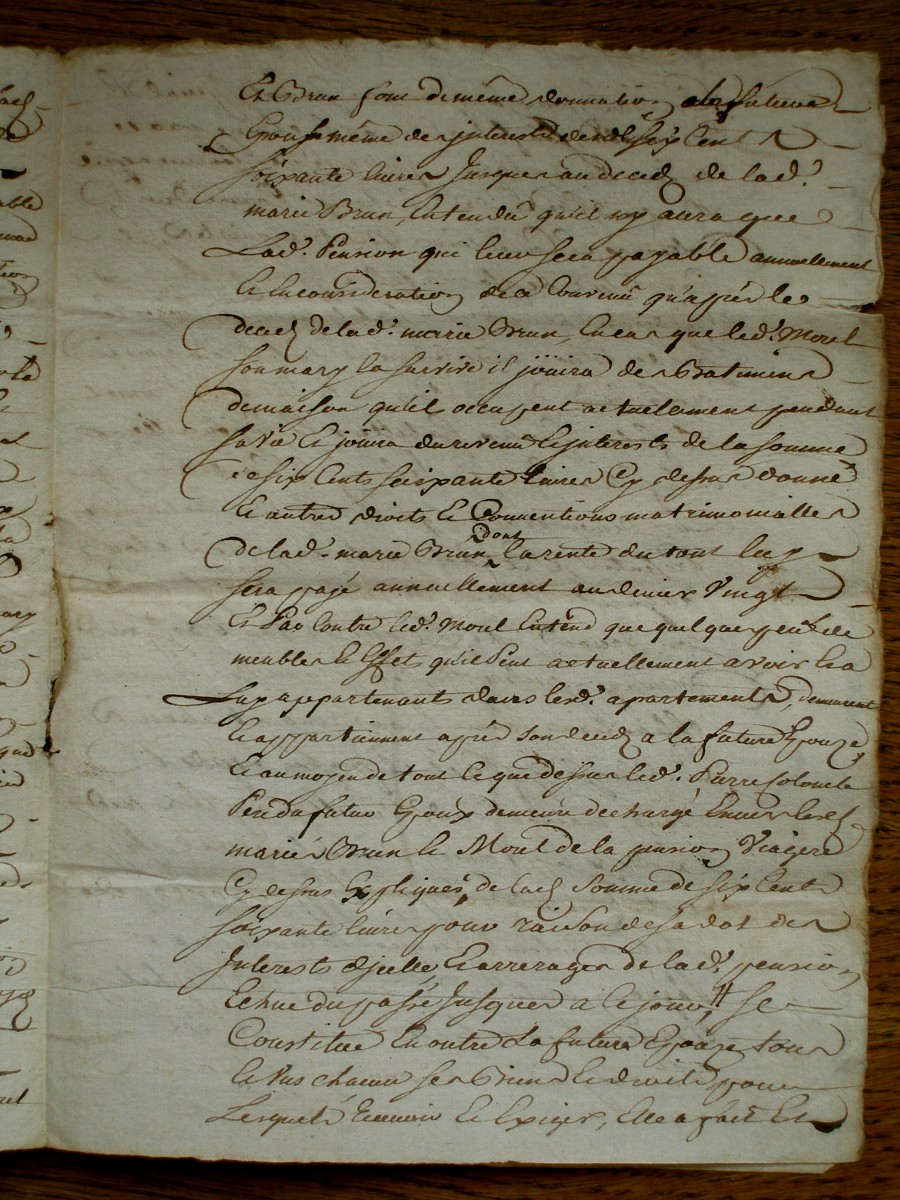 Et Brun font de même donnation a la future
Epouse même des interests desd. six cents
soixante livres jusques au deced de lad.
marie Brun, Entendû qu'il n'y aura que
Lad. Pension qui leur sera payable annuellement
Et En consideration de ce Convenû qu'après le
deced de lad. marie Brun, En cas que led. Morel
son mary la survive il jouira des Batiments
de maison qu'il occupent actuelement pendant
sa vie Et jouira du revenu Et jnterests de la somme
de six Cents soixante Livres Cy dessus donné
Et autres droits Et Conventions matrimonialles
de lad. marie Brun, dont la rente du tout luy
sera payé annuellement au denier Vingt
Et Par Contre led. Morel Entend que quelque peu de
meubles Et Effets qu'il Peut actuellement avoir Et a
Luy appartenants dans lesd. apartements, demeurent
Et appartiennent après son deced a la future Epouze,
Et au moyen de tout Ce que dessus led. Pierre Colomb
Pere du futur Epoux demeure dechargé Envers lesd.
mariés Brun Et Morel de la pension Viagere
Cy dessus Expliquée, de lad. Somme de six Cents
soixante livres pour raison de sa dot des
Interests d'jcelle Et arrerages de lad. pension
Echue du passé jusques a Ce jour, se
Constitue En outre La future Epouze tous
Et Uns chacuns ses Biens Et droits pour
Lesquels recouvrir Et Exiger, Elle a fait Et